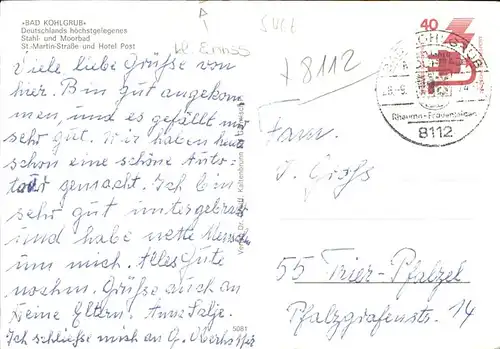 »BAD KOHLGRUB«
Deutschlands höchstgelegenes
Stahl- und Moorbad
St.-Martin-Straße und Hotel Post
Viele liebe Grüße von
hier. Bin gut angekom
men, und es gefällt mir
sehr gut. Wir haben heute
schon eine schöne Auto-
tour gemacht. Ich bin
sehr gut untergebracht
und habe nette Menschen
um mich. Alles Gute
nochm. Grüße auch an
Deine Eltern.
Ich schließe mich an G.
5081
+ 8112
40
8112
Fam.
J. Groß
55 Trier-Pfalzel
Pfalzgrafenstr. 14